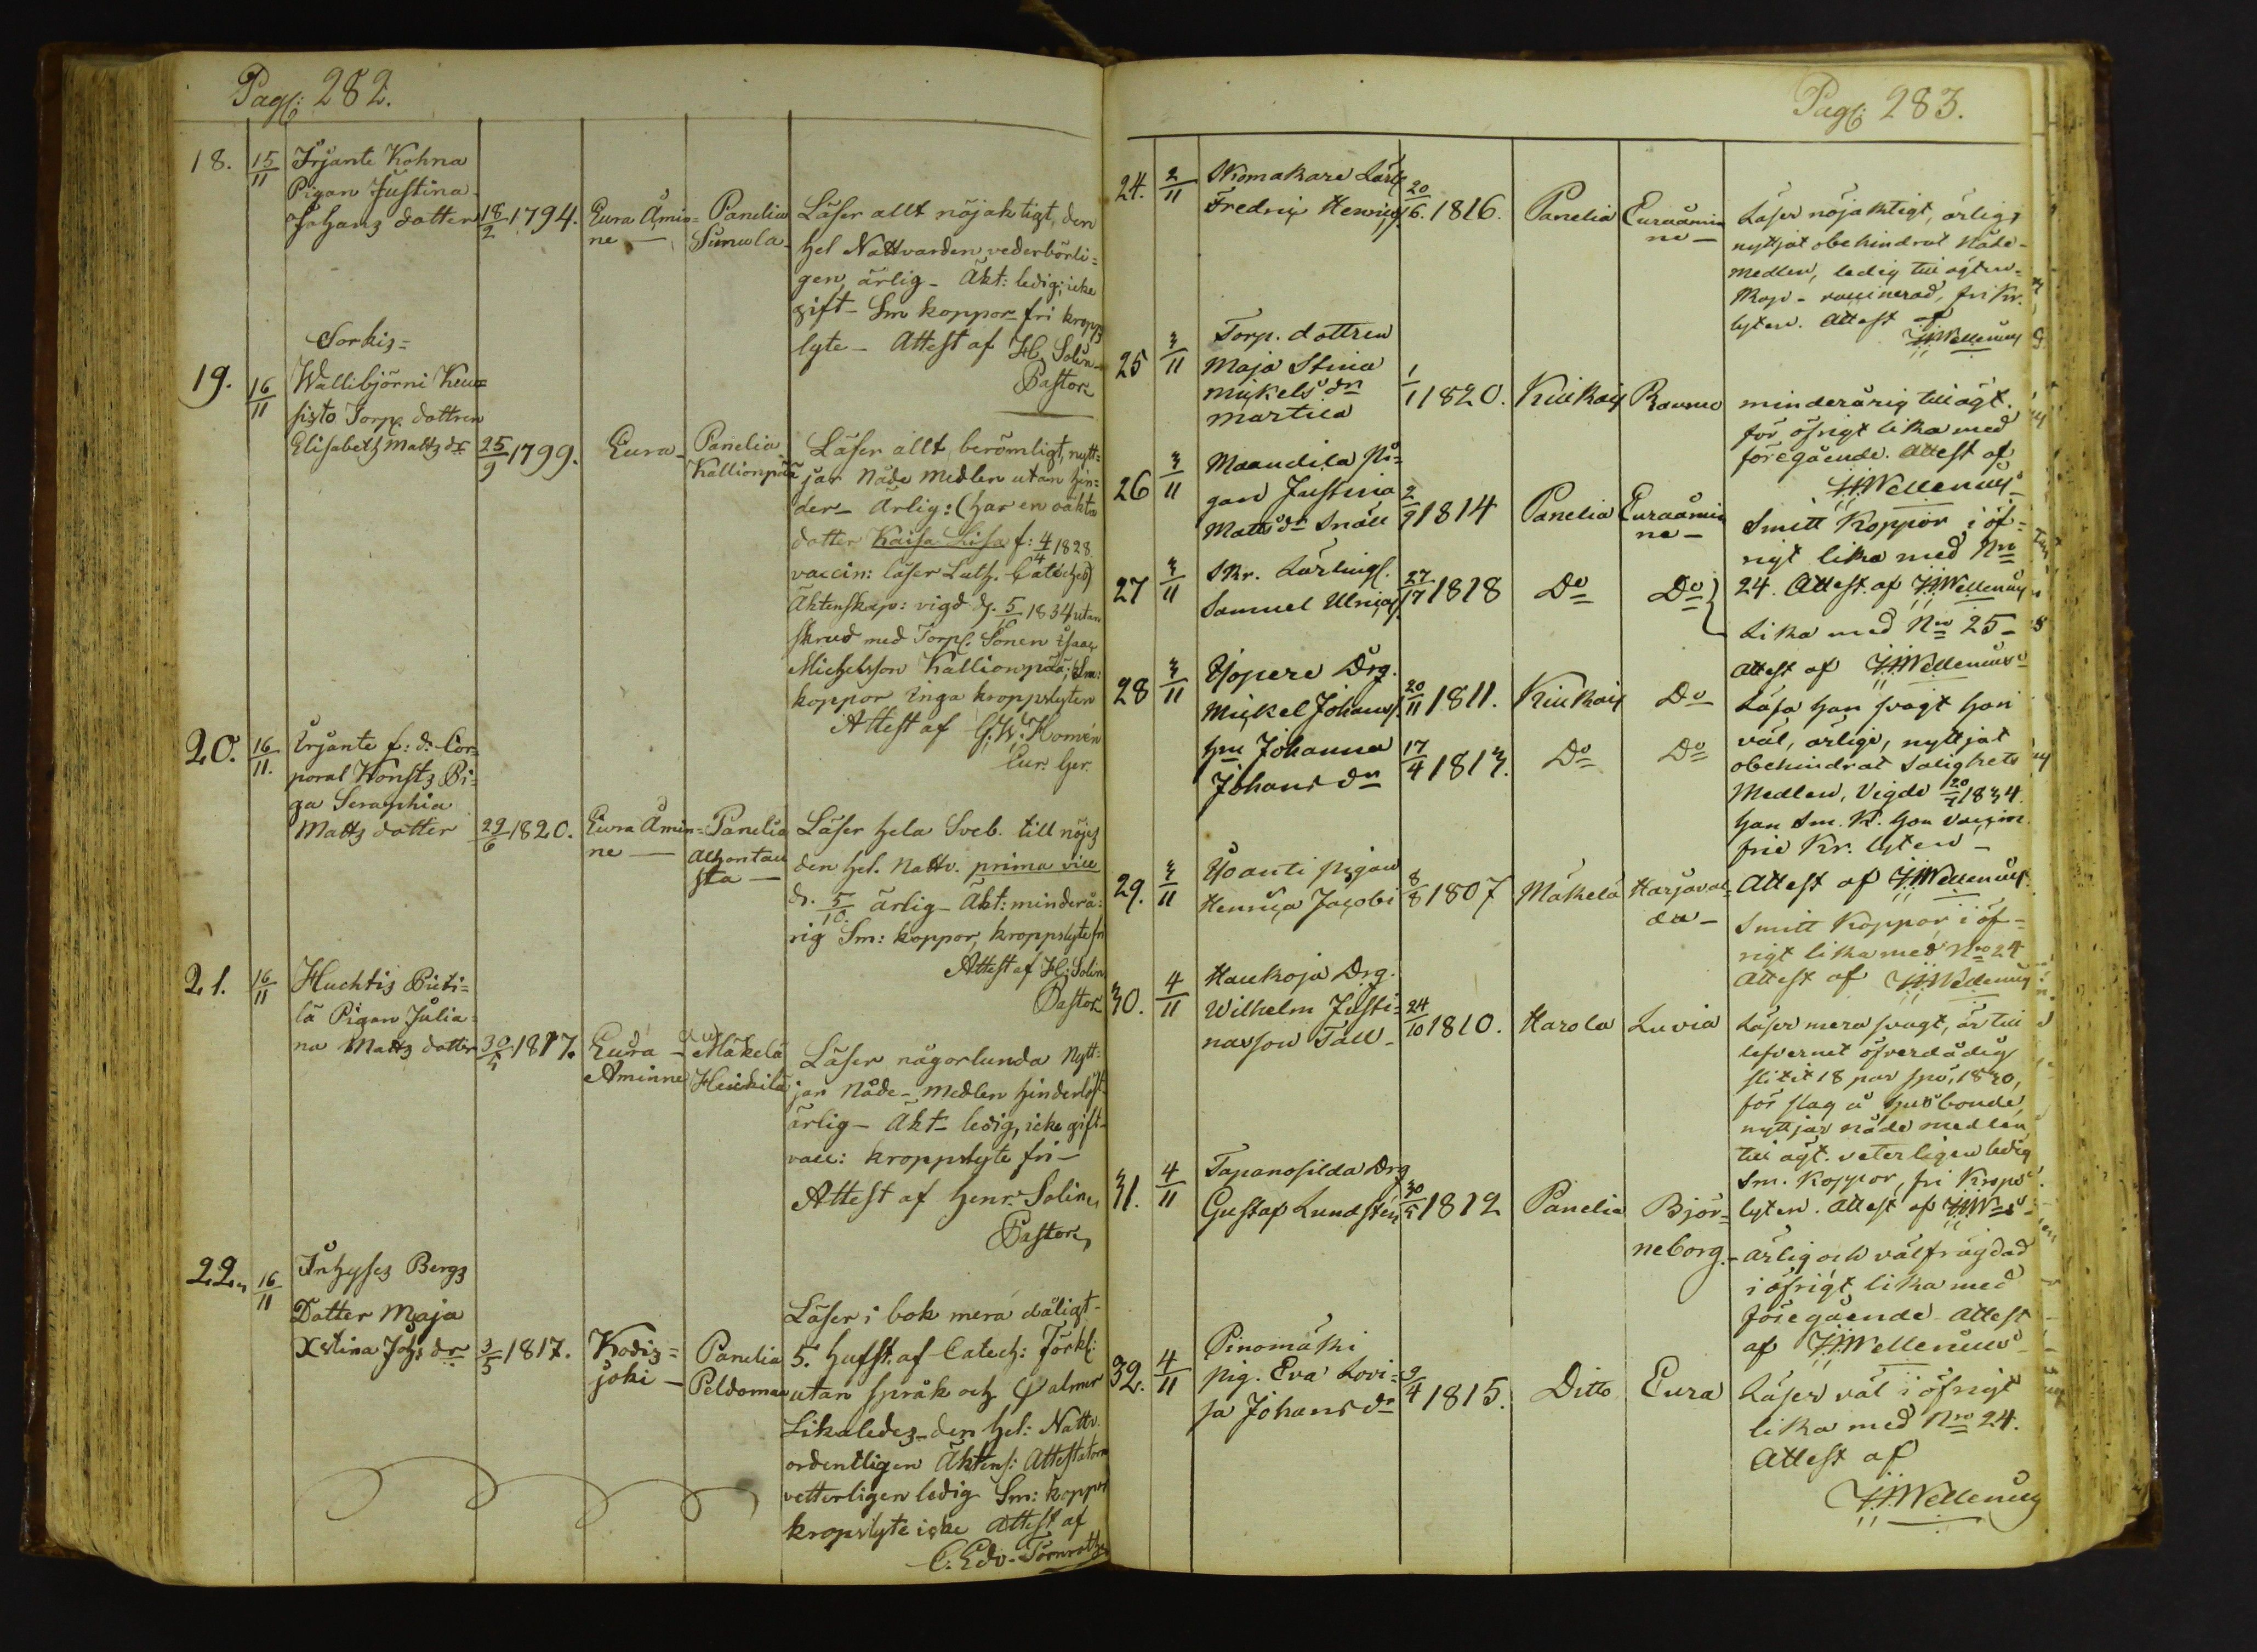 Pag: 282.
18. 15/11 Irjante Kohna
Pigan Justina
Johans dotter 18/2 1794. Eura Åmin=
ne — Panelia
Simula. Läser allt nöjaktigt, den
hel Nattvarden vederbörli=
gen, ärlig – Äkt: ledig; icke
gift – Sm koppor – fri kropps
lyte – Attest af H. Solin
Pastor
Sorkis=
19. 16/11 Wallibjörni Keu=
sisto Torp. dottren
Elisabeth Matts dr 25/9 1799. Eura Panelia
Kallionpää Läser allt berömligt, nytt=
jar Nåde Medlen utan hin=
der – Ärlig: (har en oäkta
dotter Kaisa Lisa f: 4/4 1828.
vaccin: läser Luth. Cateches)
Äktenskap: vigd d. 5/10 1834 utan
skrud med Torp. Sonen Isaac
Michelsson Kallionpää; Sm:
koppor Inga kroppslyten
Attest af G. W. Homén
Eur. her.
20. 16/11. Irjante f: d. Cor=
poral Konsts Pi=
ga Seraphia
Matts dotter 29/6 1820. Eura Åmin=
ne — Panelia
Alhontau
sta — Läser hela Sveb. till nöjes
den hel. Nattv. prima vice
d. 5/10. ärlig – Äkt: minderå:
rig Sm: koppor, kroppslyte fri
Attest af H: Solin
Pastor
21. 16/11 Huchtis Piiti=
lä Pigan Julia=
na Matts dotter 30/5 1817. Eura
Aminne Mäkelä
Heickilä Läser någorlunda Nytt=
jar Nåde – Medlen hinderlöst
ärlig – Äkt – ledig, icke gift –
vacc: kroppslyte fri –
Attest af Henr. Solin
Pastor
22. 16/11 Inhyses Bergs
Dotter Maja
Xstina Joh: dr 3/5 1817. Kodis=
joki — Panelia
Peldoman Läser i bok mera dåligt –
5. hufst. af Catech: Förkl:
utan språk och Psalmer
Likaledes – den hel: Nattv.
ordentligen Äktens: Attestatorn
vetterligen ledig Sm: koppor
kropslyte icke Attest af
C. Edv. Törnroth
Pag: 283.
24. 2/11 Skomakare Lärl
Fredric Henrics 20/6. 1816. Panelia Euraåmin
ne – Läser nöjaktigt, ärlig,
nyttjat obehindrat Nåde-
medlen, ledig till ägten-
skap – vaccinerad, fri Kr.
lyten. Attest af
HWellenius
25 3/11 Torp. dottren
Maja Stina
Mickels dr
Martila 1/1 1820. Kiukais Raumo minderårig till ägt.
för öfrigt lika med
föregående. Attest af
HWellenius
26 3/11 Maandila Pi=
gan Justina
Matts dr Snäll 2/9 1814 Panelia Euraåmin
ne – Smitt Koppor, i öf=
rigt lika med Nro
24. Attest af HWellenius
27 3/11 Skr. Lärling
Samuel Ulrics 27/17 1818 Do Do Lika med Nro 25 –
Attest af HWellenius
28 3/11 Drg.
Mickel Johans 20/11 1811. Kiukais Do Läser han svagt hon
väl, ärlige, nyttjat
hu Johanna
Johans dr 17/4 1813. Do Do obehindrat Salighets
Medlen, Vigde 20/7 1834.
han Sm. K. hon vaccin
frie Kr. lyten –
Attest af HWellenius
29. 3/11 Pigan
Henrica Jacobi 8/8 1807 Mäkelä Harjaval=
da – Smitt Koppor, i öf=
rigt lika med Nro 24
Attest af HWellenius
30. 4/11 Haukoja Drg.
Wilhelm Justi=
nasson Tall – 24/10 1810. Harola Luvia Läser mera svagt, är till
lefvernet öfverdådig
slitit 18 par spö, 1830,
för slag å husbonde,
nyttjar nåde medlen
till ägt. veterligen ledig
Sm. Koppor, fri Krops
lyten. Attest af HW
31. 4/11 Tapanosilda Drg
Gustaf Lundstén 30/5 1812 Panelia Björ=
neborg. – Ärlig och välfrägdad
i öfrigt lika med
föregående. Attest
af HWellenius
32. 4/11 Pinomäki
pig. Eva Lovi=
sa Johans dr 9/4 1815. Ditto Eura Läser väl i öfrigt
lika med Nro 24.
Attest af
HWellenius